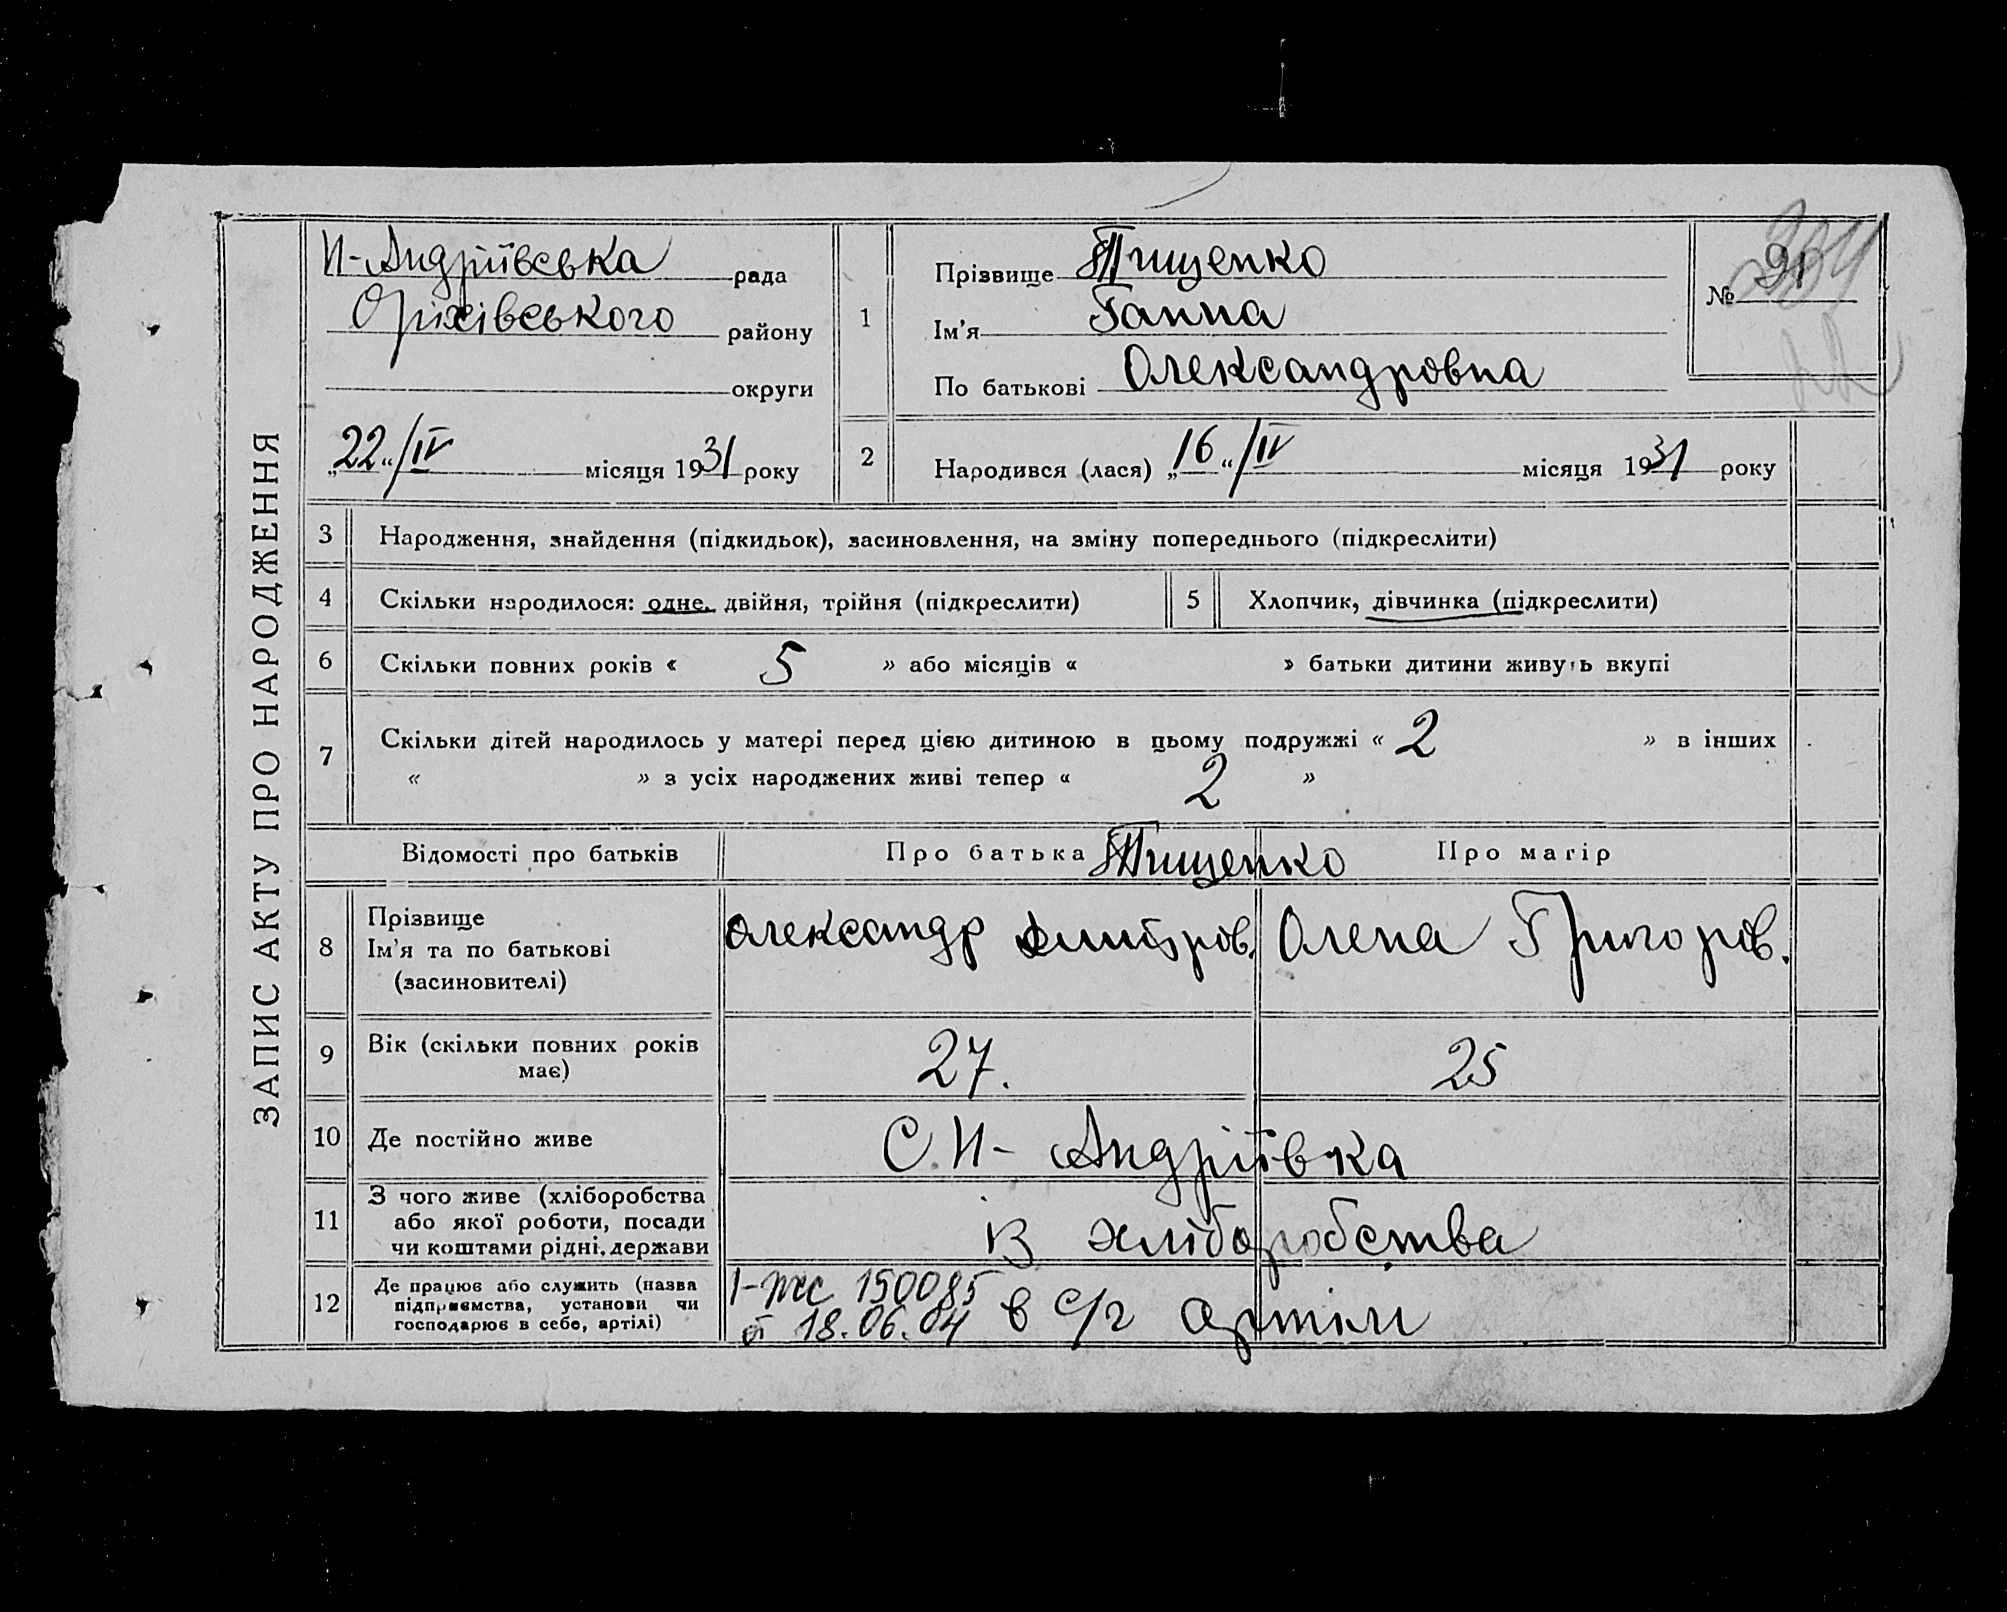 ЗАПИС АКТУ ПРО НАРОДЖЕННЯ
Н-Андріївська рада
Оріхівського району
округи
„22“/IV місяця 1931 року
1
Прізвище Тищенко
Ім'я Ганна
По батькові Олександровна
№ 91
2
Народився (лася) „16“/IV місяця 1931 року
3 Народження, знайдення (підкидьок), засиновлення, на зміну попереднього (підкреслити)
4 Скільки народилося: одне, двійня, трійня (підкреслити)
5 Хлопчик, дівчинка (підкреслити)
6 Скільки повних років « 5 » або місяців « » батьки дитини живуть вкупі
7 Скільки дітей народилось у матері перед цією дитиною в цьому подружжі « 2 » в інших
« » з усіх народжених живі тепер « 2 »
Відомості про батьків Про батька Тищенко Про матір
8 Прізвище
Ім'я та по батькові
(засиновителі)
Олександр Дмитров. Олена Григоров.
9 Вік (скільки повних років
має)
27. 25
10 Де постійно живе С. Н-Андріївка
11 З чого живе (хліборобства
або якої роботи, посади
чи коштами рідні, держави
із хліборобства
12 Де працює або служить (назва
підприємства, установи чи
господарює в себе, артілі)
І-ЖС 150085
от 18.06.04
в с/г артіли